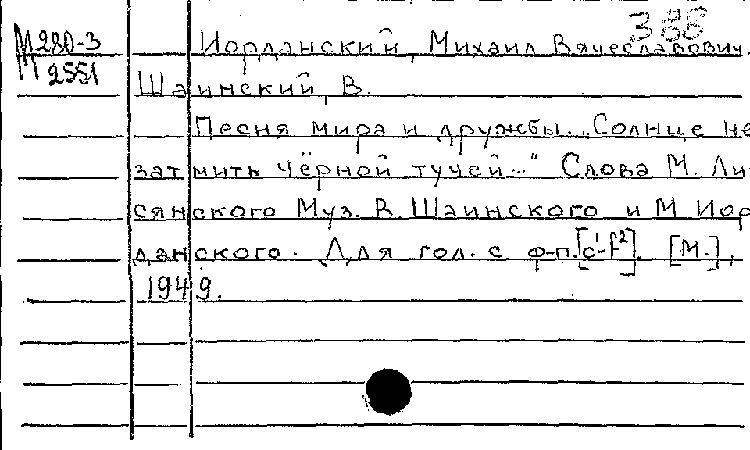 388
М280-3 Иорданский, Михаил Вячеславович.
2551
Шаинский, В.
Песня мира и дружбы. „Солнце не
затмить чёрной тучей..." Слова М. Ли-
сянского Муз. В. Шаинского и М. Иор-
данского. Для гол. с ф-п. [c¹-f²]. [М.],
1949.